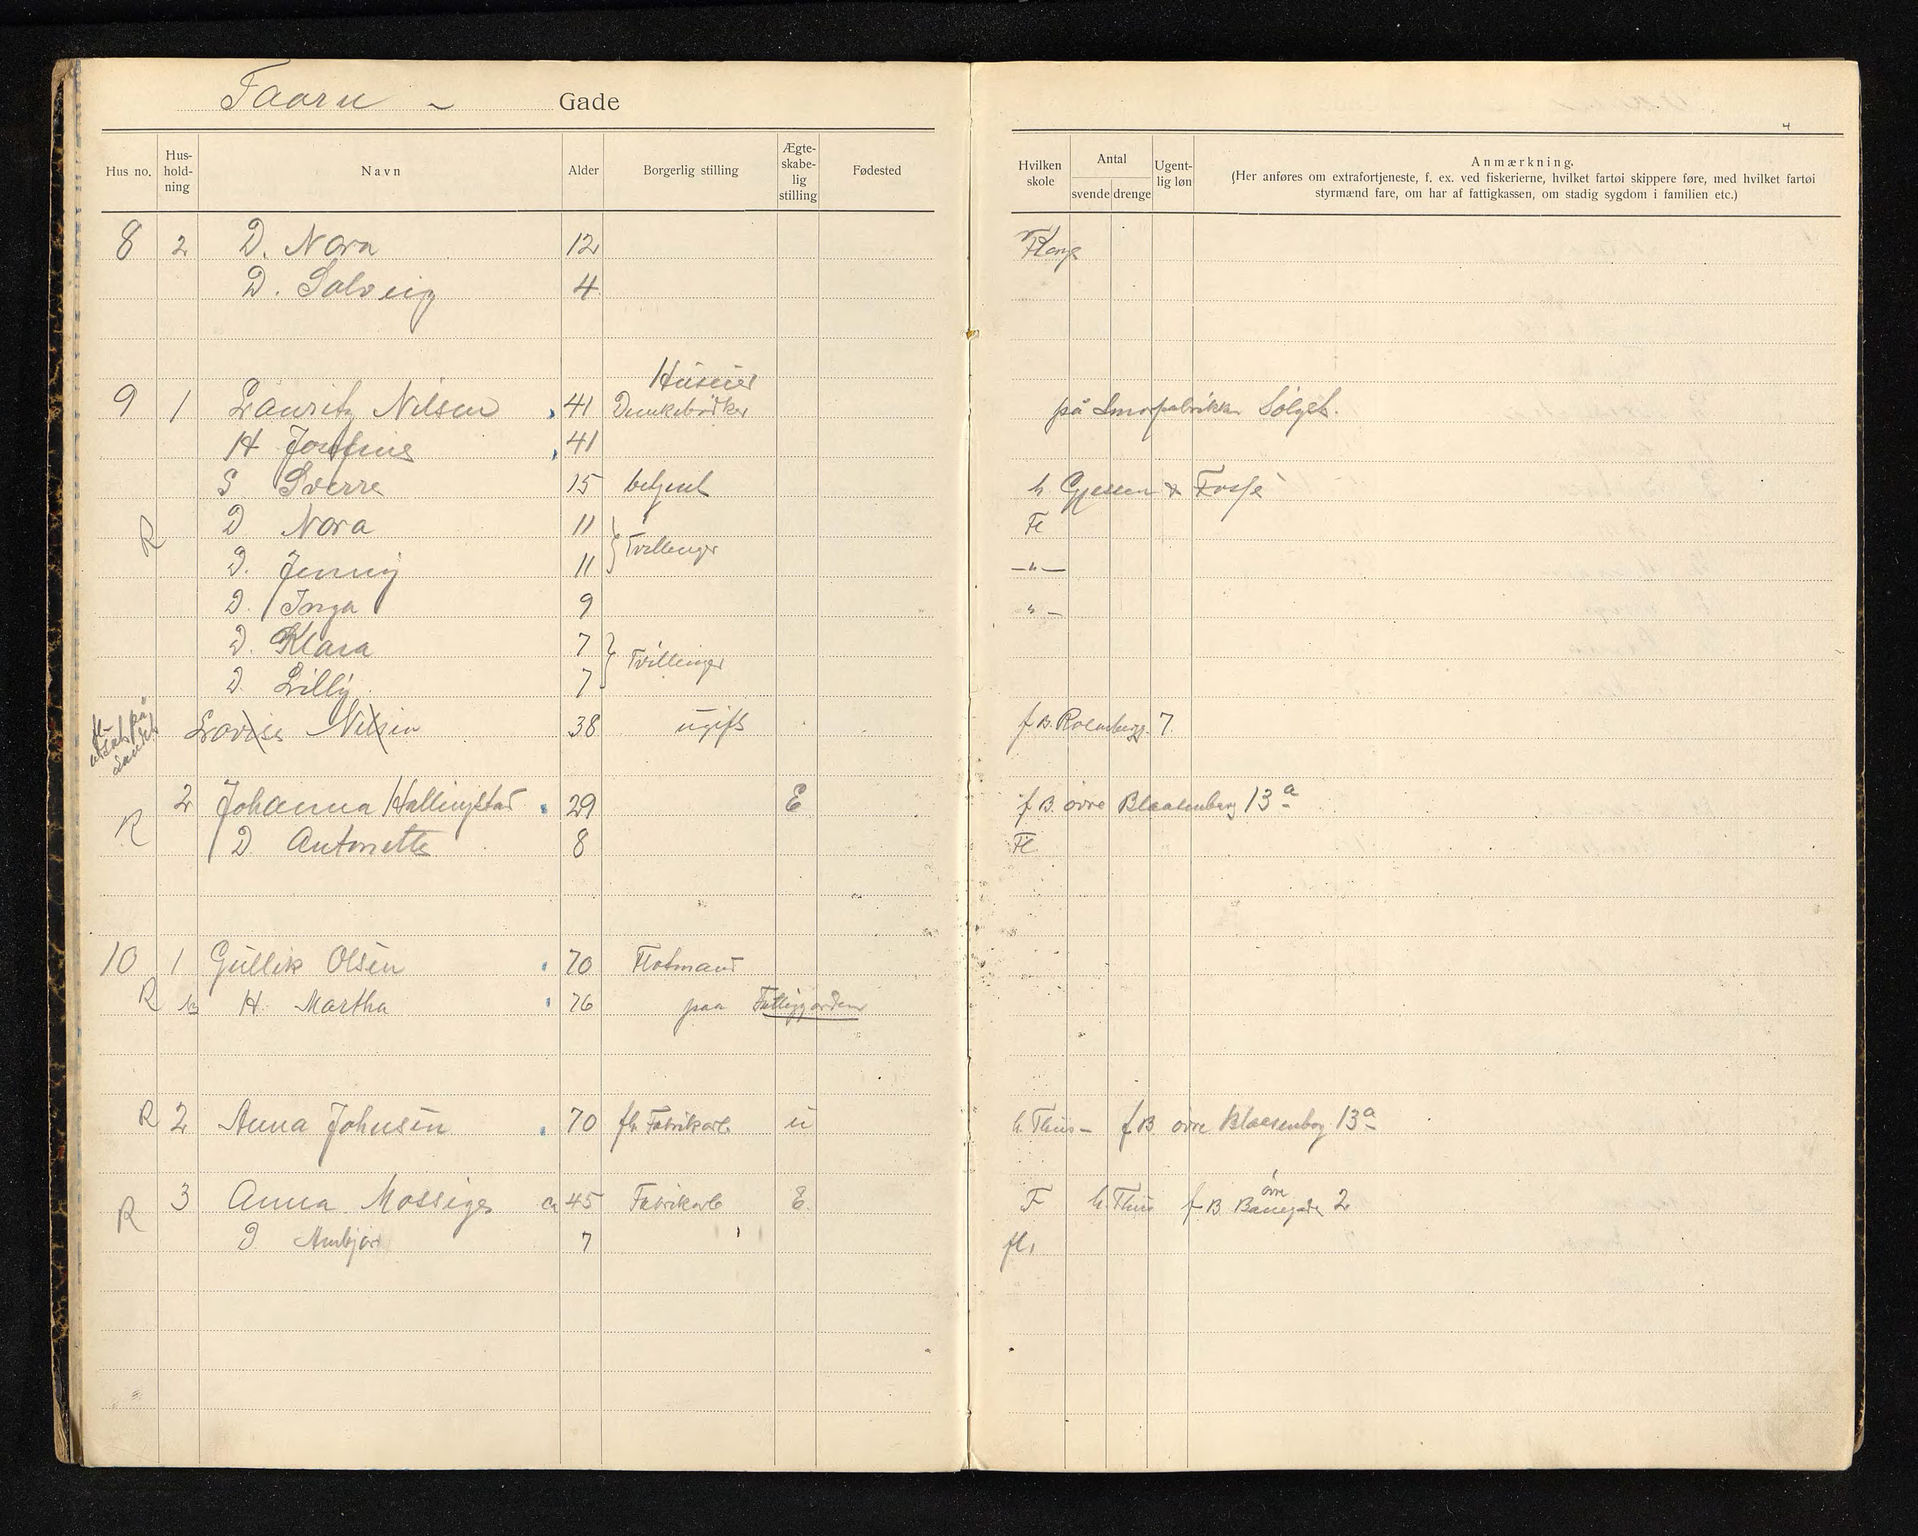 Taarn - Gade
Hus no. Hus-hold-ning Navn Alder Borgerlig stilling Ægte-skabe-lig stilling Fødested
Hvilken skole Antal svende drenge Ugent-lig løn Anmærkning.
(Her anføres om extrafortjeneste, f. ex. ved fiskerierne, hvilket fartøi skippere føre, med hvilket fartøi
styrmænd fare, om har af fattigkassen, om stadig sygdom i familien etc.)
4
8 2 D. Nora 12
D. Solveig 4
Huseier
9 1 Lauritz Nilsen 41 Dunkebødker på Smørfabrikken Sølyst.
H Josefine 41
S Sverre 15 betjent h. Gjessen & Fosse
R D Nora 11 Tvillinger Fl
D. Jenny 11 -"-
D. Inga 9 "-
D. Klara 7 Tvillinger
D. Lilly 7
Lovise Nilsen 38 ugift f B. Rosenbergg. 7
2 Johanna Hallingstad 29 E f B. øvre Blaasenborg 13a
R D Antonette 8 Fl.
10 1 Gullik Olsen 70 Flotmand
R H. Martha 76 paa Fattiggarden
R 2 Anna Johnsen 70 fh Fabrikarb u h. Thus- f B øvre Blaasenborg 13a
R 3 Anna Mossiges ca 45 Fabrikarb E. F h. Thus f B øvre Banegade 2
D Anbjør 7 fl.